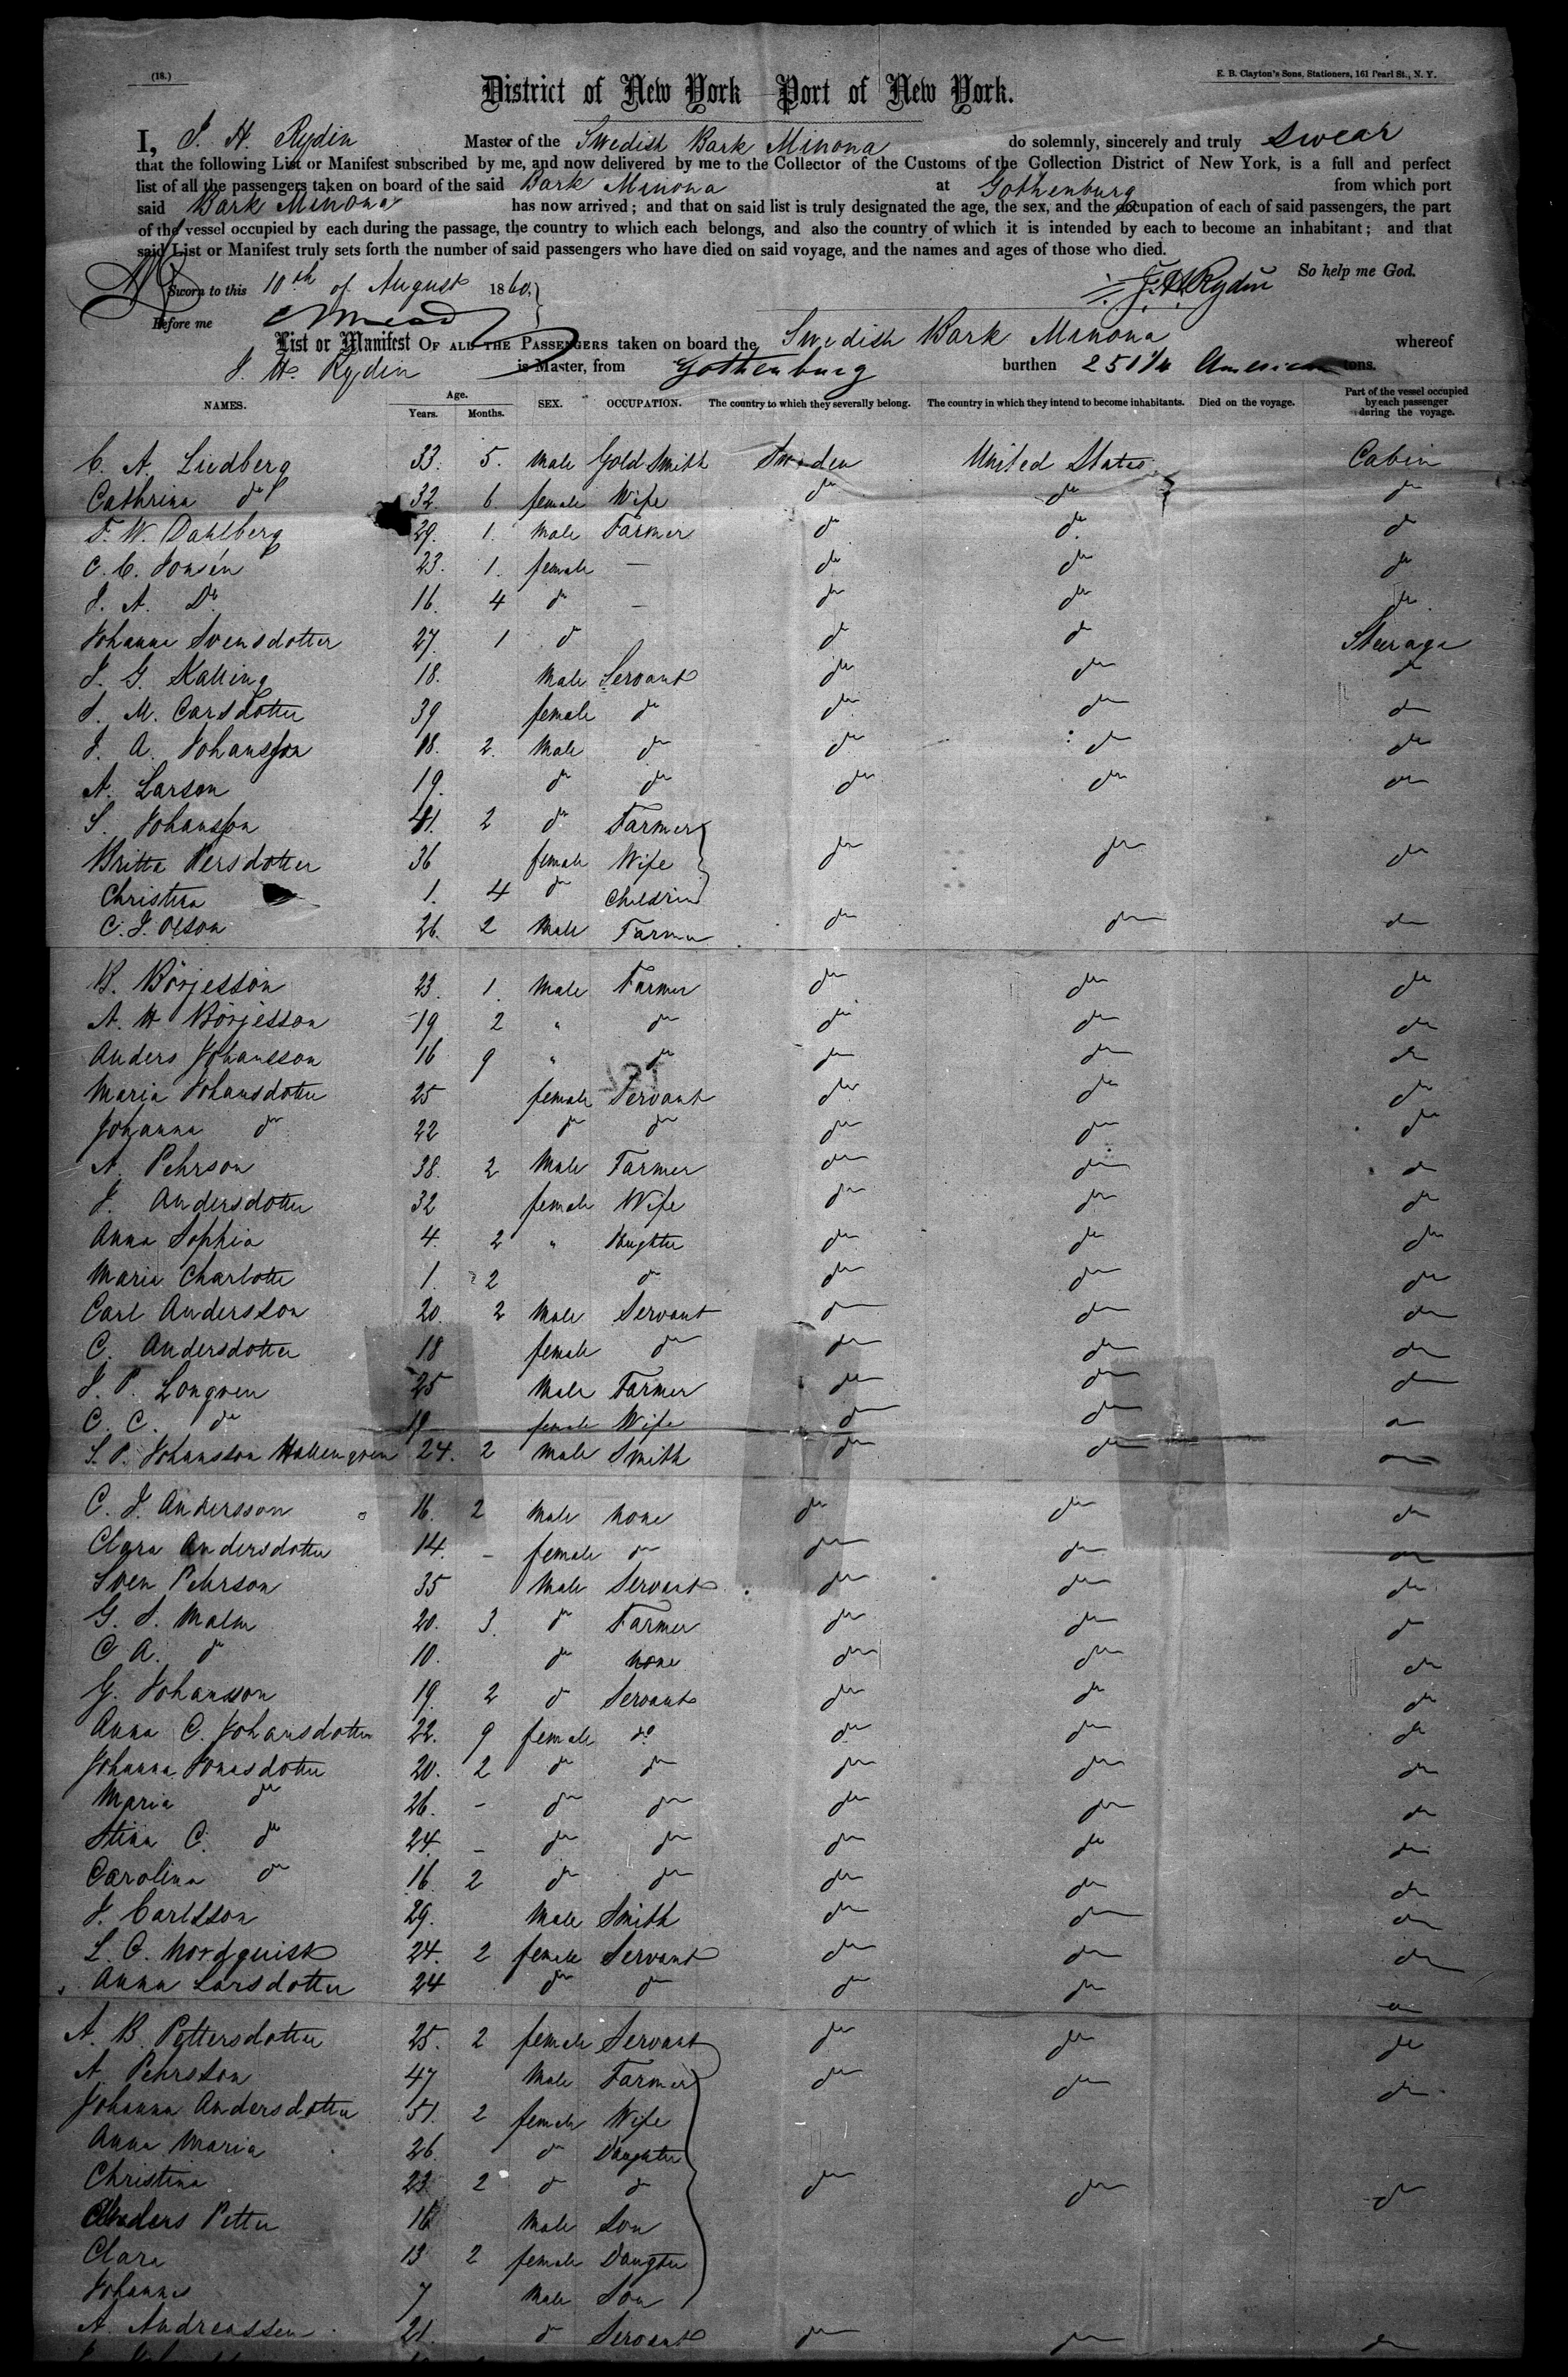 (18.)
E. B. Clayton's Sons, Stationers, 161 Pearl St., N. Y.
District of New York Port of New York.
I, J. H. Rydin Master of the Swedish Bark Minona do solemnly, sincerely and truly swear
that the following List or Manifest subscribed by me, and now delivered by me to the Collector of the Customs of the Collection District of New York, is a full and perfect
list of all the passengers taken on board of the said Bark Minona at Gothenburg from which port
said Bark Minona has now arrived; and that on said list is truly designated the age, the sex, and the occupation of each of said passengers, the part
of the vessel occupied by each during the passage, the country to which each belongs, and also the country of which it is intended by each to become an inhabitant; and that
said List or Manifest truly sets forth the number of said passengers who have died on said voyage, and the names and ages of those who died.
So help me God.
Sworn to this 10th of August 1860, J. H. Rydin
Before me
List or Manifest OF ALL THE PASSENGERS taken on board the Swedish Bark Minona whereof
J. H. Rydin is Master, from Gothenburg burthen 250 American tons.
NAMES. Age. Years. Months. SEX. OCCUPATION. The country to which they severally belong. The country in which they intend to become inhabitants. Died on the voyage. Part of the vessel occupied by each passenger during the voyage.
C. A. Lindberg 33. 5. male Gold Smith Sweden United States Cabin
Cathrina do 32. 6 female Wife do do do
F. W. Dahlberg 29. 1. male Farmer do do do
C. C. Jonsén 23. 1. female — do do do
J. A. Do 16. 4 do — do do do
Johanna Svensdotter 27. 1 do do do Steerage
J. G. Kalling 18. male Servant do do do
S. M. Carsdotter 39 female do do do do
J. A. Johansson 18. 2. male do do do do
A. Larson 19. do do do do do
S. Johansson 41. 2 do Farmer
Britta Persdotter 36 female Wife do do do
Christina 1. 4 do Children
C. J. Olson 26. 2 male Farmer do do do
B. Börjesson 23. 1. male Farmer do do do
A. H Börjesson 19 2 " do do do do
Anders Johansson 16 9 " do do do do
Maria Johansdotter 25 female Servant do do do
Johanna do 22 do do do do do
A. Pehrson 38. 2 male Farmer do do do
J. Andersdotter 32 female Wife do do do
Anna Sophia 4. 2 " Daughter do do do
Maria Charlotte 1. 2 do do do do
Carl Andersson 20. 2 male Servant do do do
C. Andersdotter 18 female do do do do
J. P. Longren 25 male Farmer do do do
C. C. do 19 female Wife do do do
S. P. Johansson Hallengren 24. 2 male Smith do do do
C. J. Andersson 16. 2 male none do do do
Clara Andersdotter 14. – female do do do do
Sven Pehrson 35 male Servant do do do
G. S. Malm 20. 3. do Farmer do do do
C A. do 10. do none do do do
G. Johansson 19. 2 do Servant do do do
Anna C. Johansdotter 22. 9 female do do do do
Johanna Jonasdotter 20. 2 do do do do do
Maria do 26. – do do do do do
Stina C. do 24. – do do do do do
Carolina do 16. 2 do do do do do
J. Carlsson 29. male Smith do do do
L. C. Nordquist 24. 2 female Servant do do do
Anna Larsdotter 24 do do do do do
A. B. Pettersdotter 25. 2 female Servant do do do
A. Pehrsson 47 male Farmer do do do
Johanna Andersdotter 51. 2 female Wife
Anna Maria 26. do Daughter
Christina 23 2 do do do do do
Anders Petter 16 male Son
Clara 13 2 female Daugter
Johannes 7 male Son
A. Andreassen 21. do Servant do do do